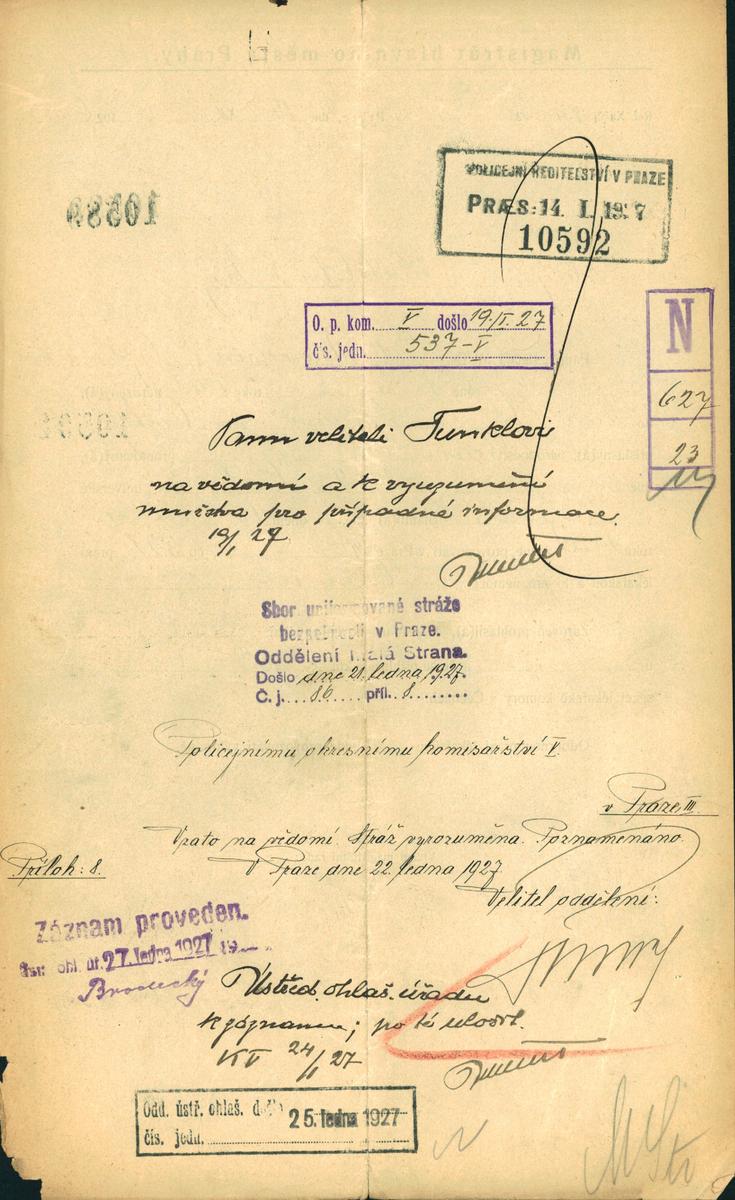 POLICEJNÍ ŘEDITELSTVÍ V PRAZE
PRÆS: 14. I. 1927
10592
O. p. kom. V došlo 19/I. 27
čís. jedn. 537-V
N
627
23
Panu veliteli Tunklovi
na vědomí a k vyrozumění
mužstva pro případné informace.
19/I 27
Sbor uniformované stráže
bezpečnosti v Praze.
Oddělení Malá Strana.
Došlo dne 21. ledna 1927.
Č. j. 86 příl. 8
Policejnímu okresnímu komisařství V.
v Praze III.
Vrato na vědomí. Stráž vyrozuměna. Poznamenáno.
Příloh: 8.
V Praze dne 22. ledna 1927.
Velitel oddělení:
Záznam proveden.
ohl. úř. 27. ledna 1927 19
Brodecký
Ústřed. ohlaš. úřadu
k záznamu; po té uložit.
KV 24/I 27
Odd. ústř. ohlaš. došlo 25. ledna 1927
čís. jedn.